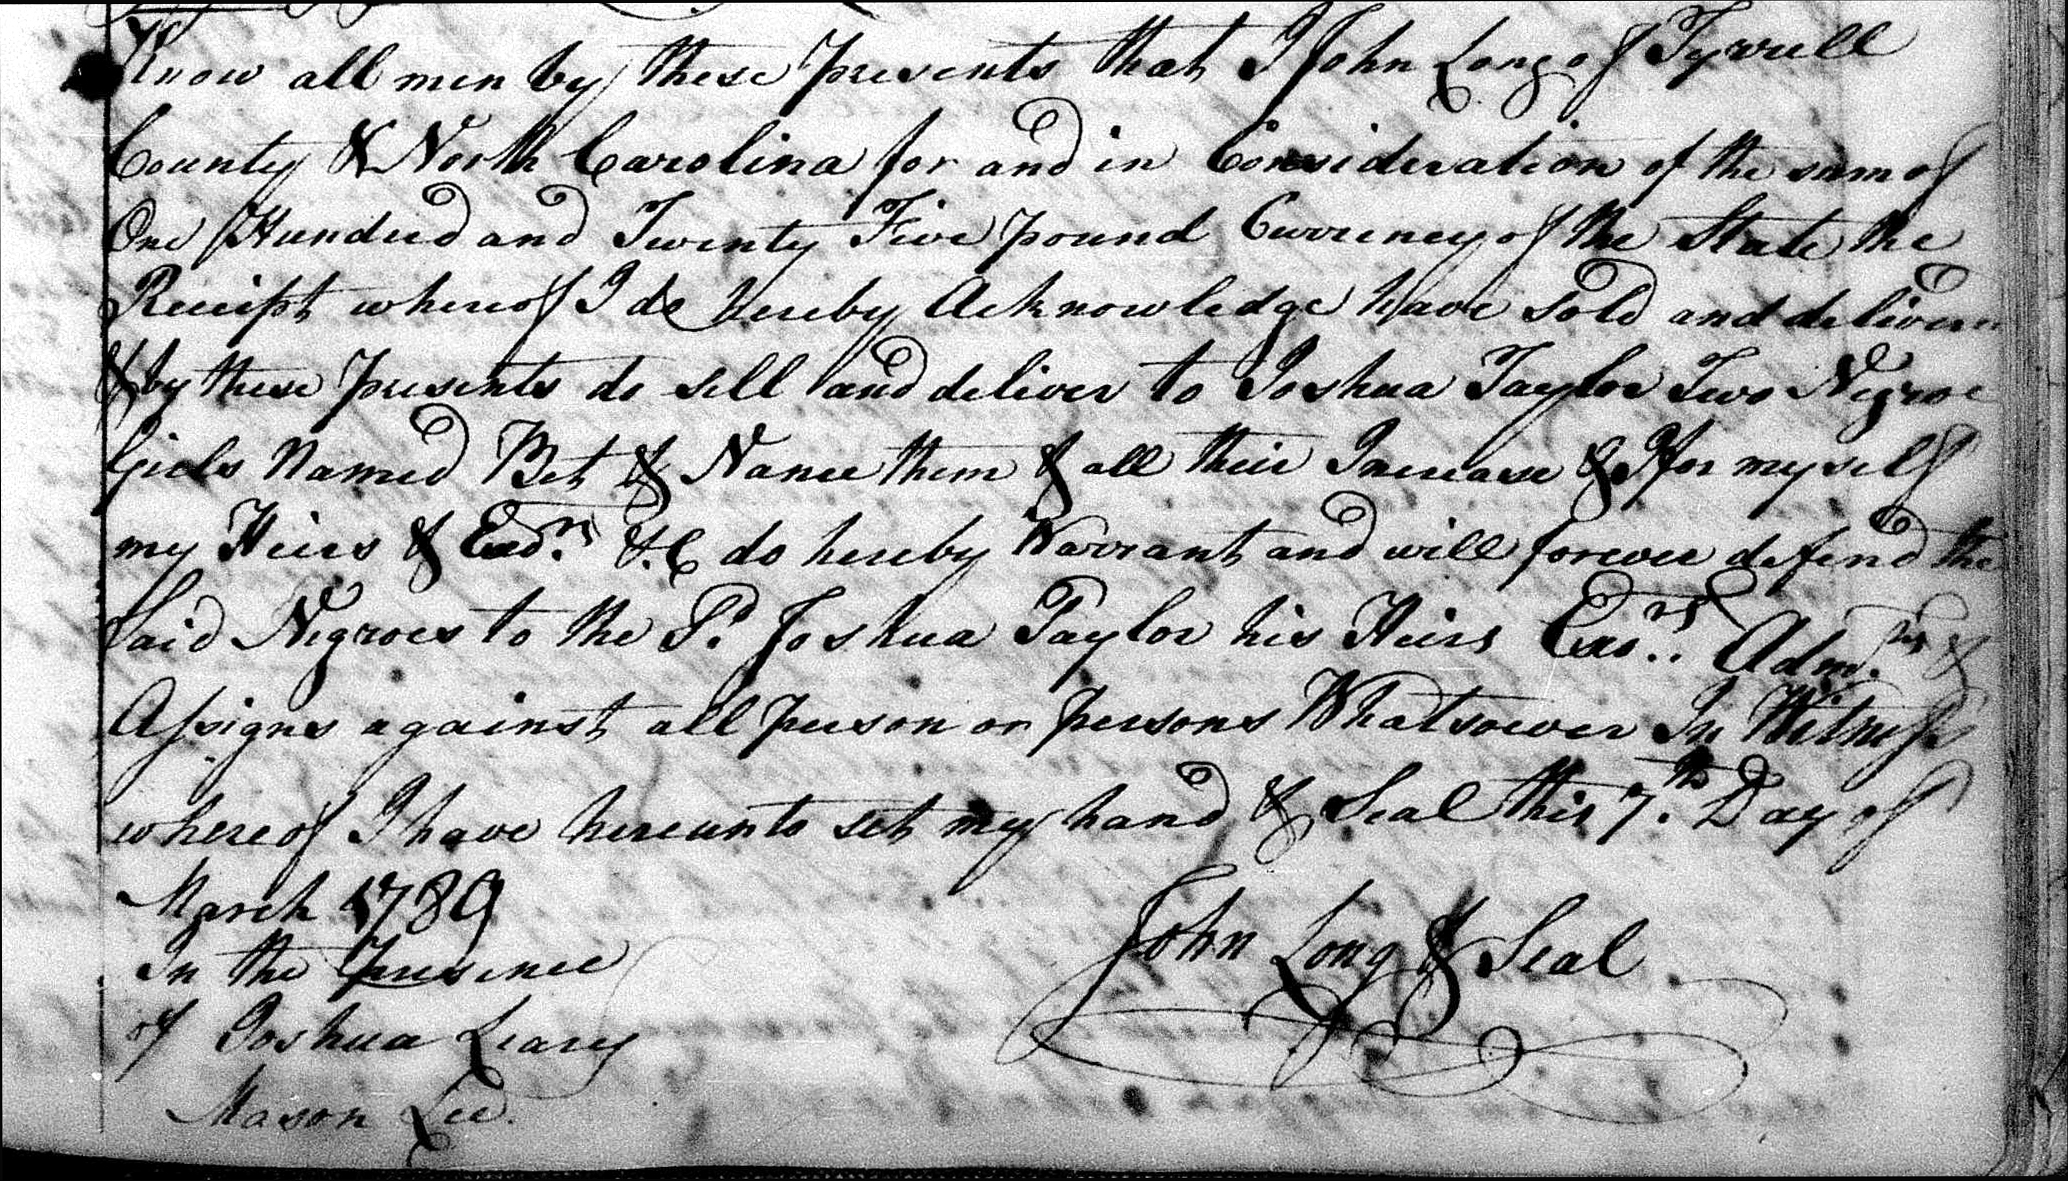 Know all men by these Presents that I John Long of Tyrrell
County & North Carolina for and in Consideration of the sum of
One Hundred and Twenty Five pound Currency of the State the
Receipt whereof I do hereby Acknowledge have sold and deliverd
& by these presents do sell and deliver to Joshua Taylor Two Negroe
Girls Named Bet & Nance them & all their Increase & I for my self
my Heirs & Exors. &.C do hereby Warrant and will forever defend the
Said Negroes to the Sd. Joshua Taylor his Heirs Exors. Admrs. &
Assigns against all person or persons Whatsoever In Witness
whereof I have hereunto set my hand & Seal this 7.th Day of
March 1789
John Long & Seal
In the Presence
of Joshua Leary
Mason Lee.